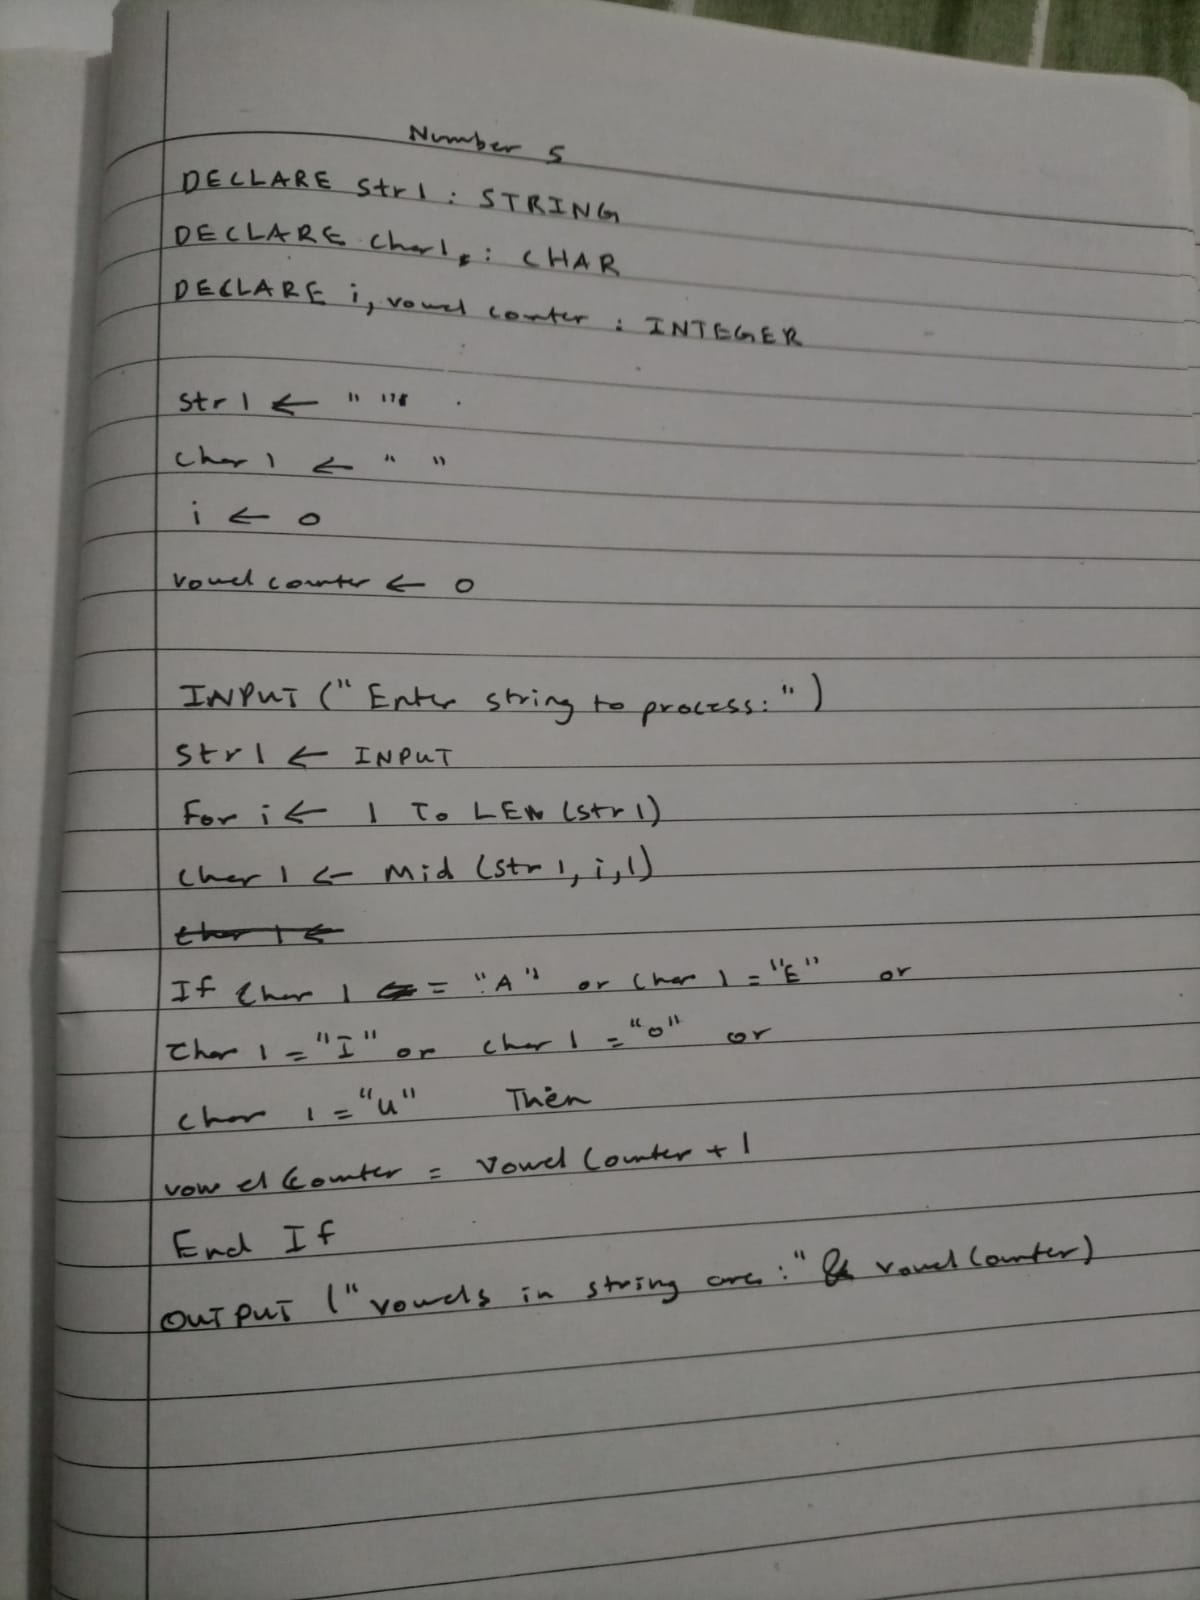 Number 5
DECLARE Str1 : STRING
DECLARE Char1 : CHAR
DECLARE i, vowel counter : INTEGER
str1 ← " "
char 1 ← " "
i ← 0
vowel counter ← 0
INPUT (" Enter string to process: ")
Str1 ← INPUT
For i ← 1 To LEN (str1)
Char 1 ← Mid (str 1, i, 1)
char 1 ←
If Char 1 = "A" or Char 1 = "E" or
Char 1 = "I" or char 1 = "o" or
char 1 = "u" Then
vowel Counter = Vowel Counter + 1
End If
OUTPUT (" vowels in string are : " & vowel Counter)